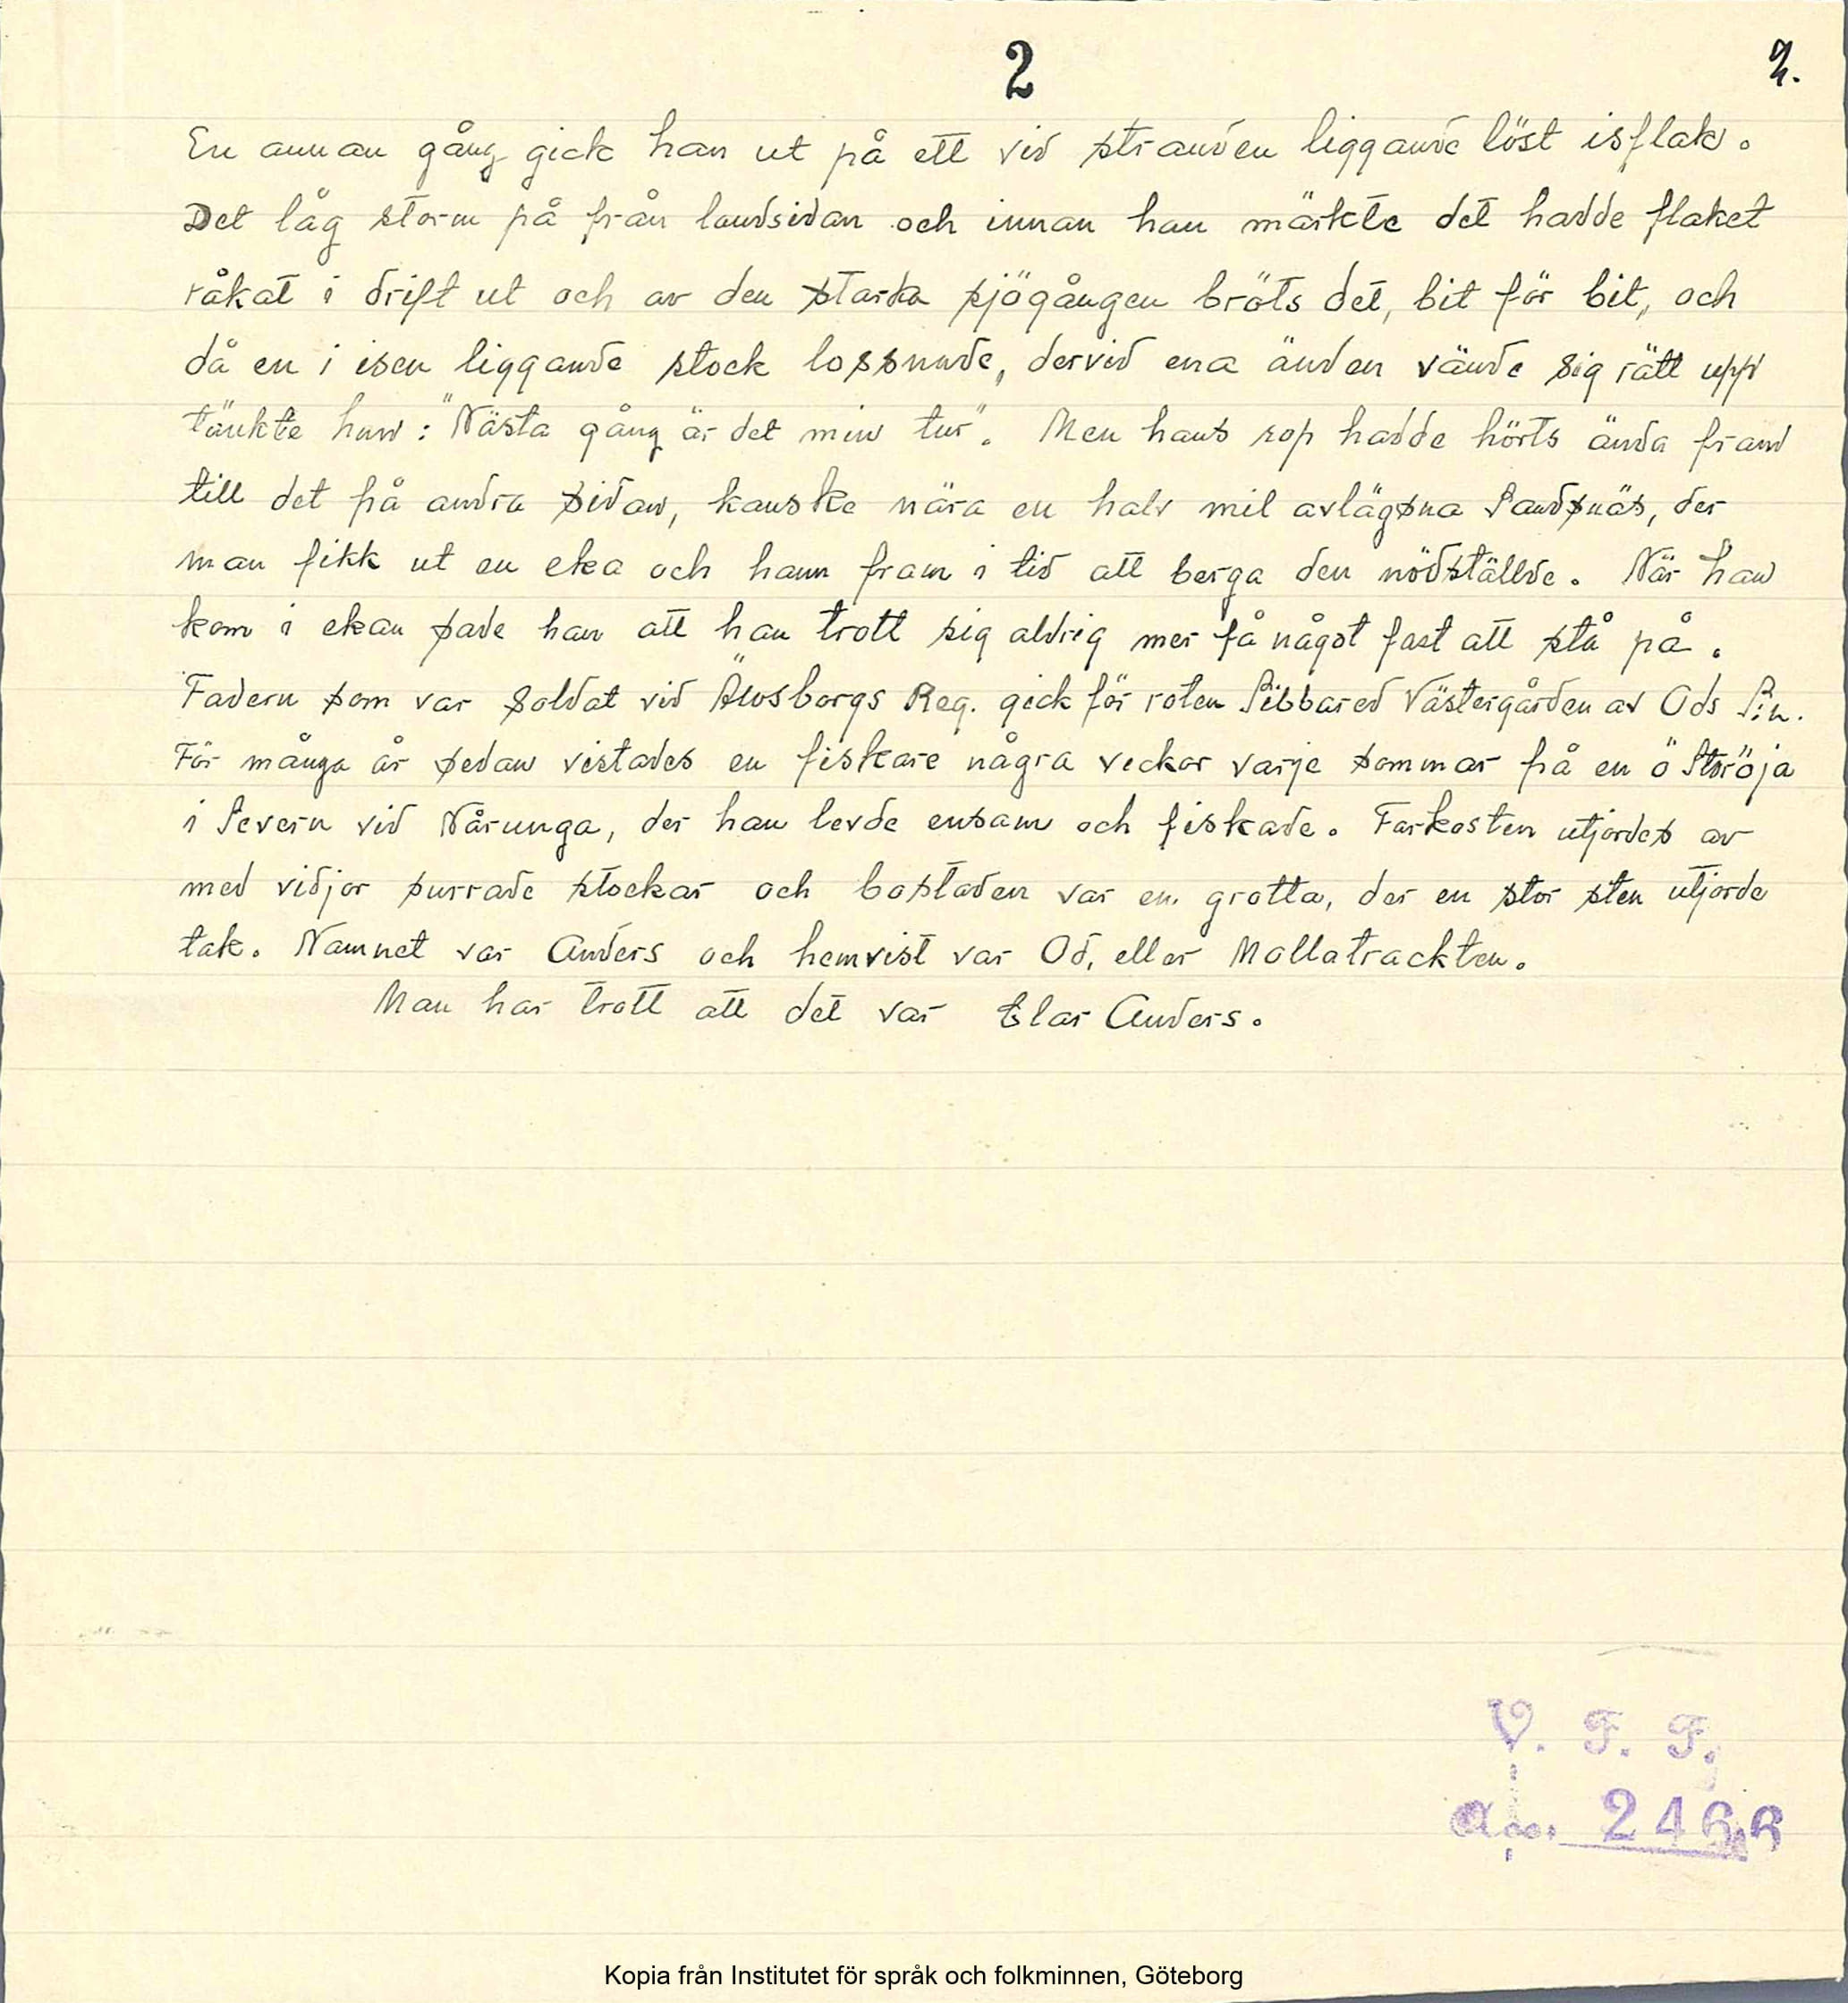 2
2.
En annan gång gick han ut på ett vid stranden liggande löst isflak.
Det låg storm på från landsidan och innan han märkte det hadde flaket
råkat i drift ut och av den starka sjögången bröts det, bit för bit, och
då en i isen liggande stock lossnade, dervid ena änden vände sig rätt upp
tänkte han: "Nästa gång är det min tur". Men hans rop hadde hörts ända fram
till det på andra sidan, kanske nära en halv mil avlägsna Sandsnäs, der
man fikk ut en eka och hann fram i tid att berga den nödställde. När han
kom i ekan sade han att han trott sig aldrig mer få något fast att stå på.
Fadern som var soldat vid Älvsborgs Reg. gick för roten Sibbared Västergården av Ods S:n.
För många år sedan vistades en fiskare några veckor varje sommar på en ö Storöja
i Severn vid Nårunga, der han levde ensam och fiskade. Farkosten utjordes av
med vidjor surrade stockar och bostaden var en grotta, der en stor sten utjorde
tak. Namnet var Anders och hemvist var Od, eller Mollatrackten.
Man har trott att det var Elar Anders.
V. F. F.
acc. 2466
Kopia från Institutet för språk och folkminnen, Göteborg